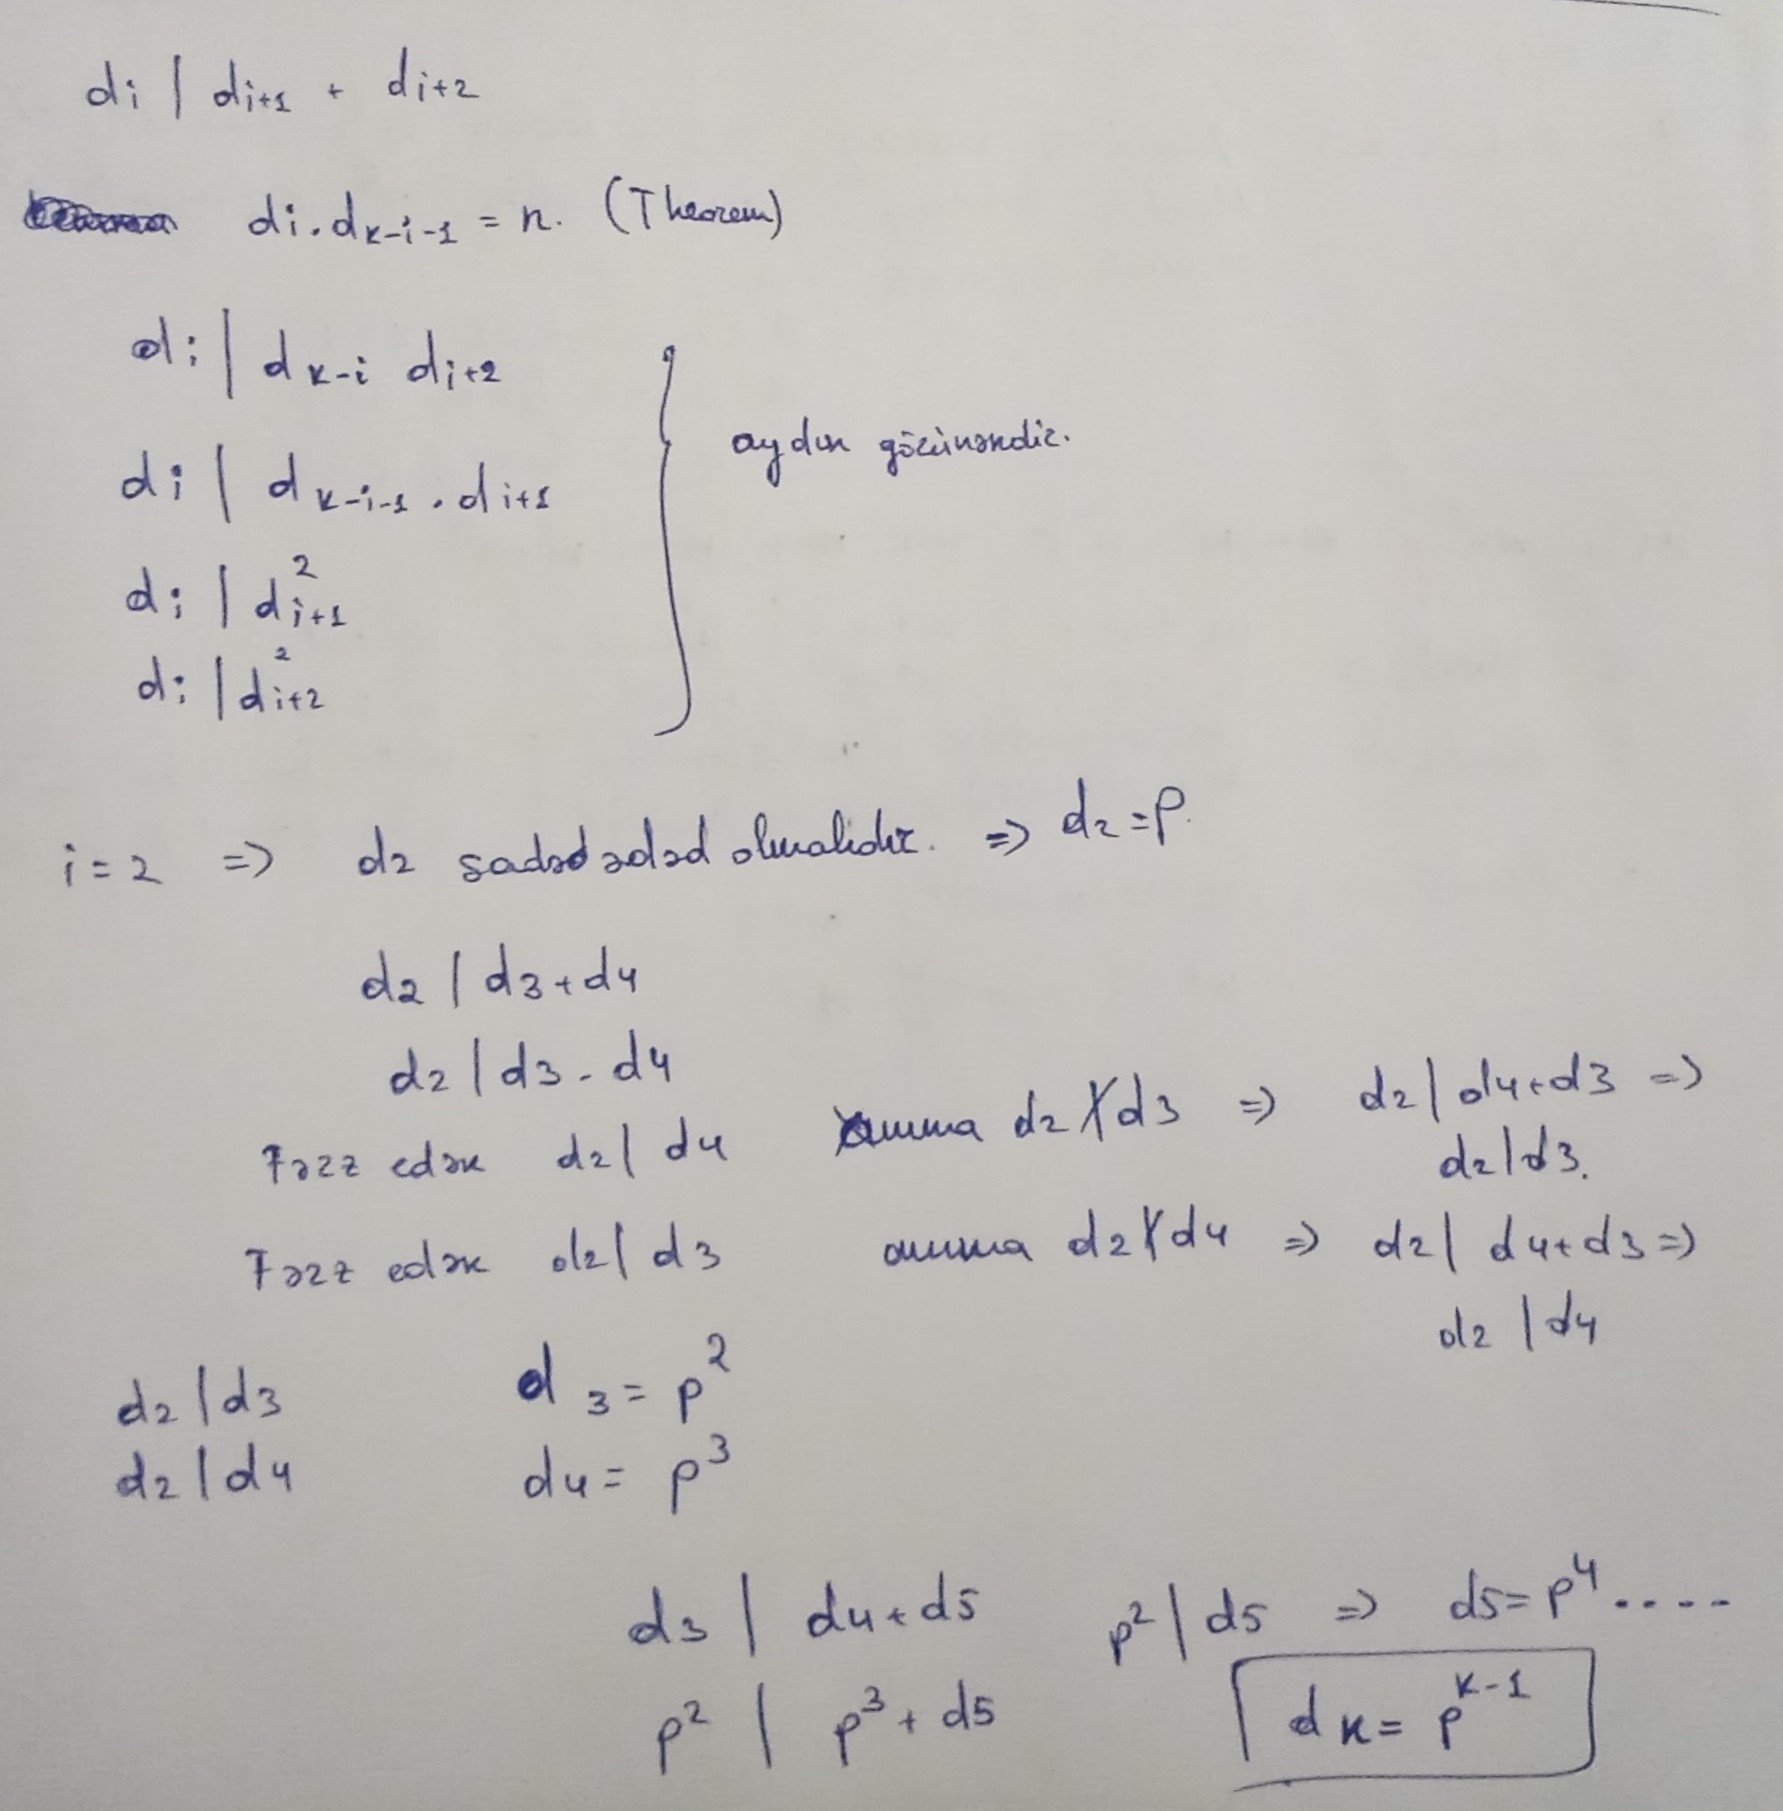 di | di+1 + di+2
di . dk-i-1 = n. (Theorem)
di | dk-i di+2
di | dk-i-1 . di+1
aydın görünəndir.
di | d²i+1
di | d²i+2
i = 2 => d2 sadəd ədəd olmalıdır. => d2 = p.
d2 | d3 + d4
d2 | d3 - d4
Fərz edək d2 | d4 amma d2 ∤ d3 => d2 | d4 + d3 =>
d2 | d3.
Fərz edək d2 | d3 amma d2 ∤ d4 => d2 | d4 + d3 =>
d2 | d4
d2 | d3 d3 = p²
d2 | d4 d4 = p³
d3 | d4 + d5 p² | d5 => d5 = p⁴ .....
p² | p³ + d5 dk = p^k-1